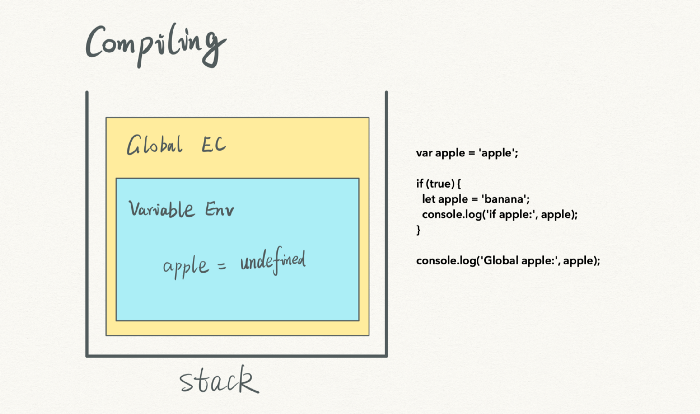 Compiling
Global EC
Variable Env
apple = undefined
stack
var apple = 'apple';
if (true) {
let apple = 'banana';
console.log('if apple:', apple);
}
console.log('Global apple:', apple);